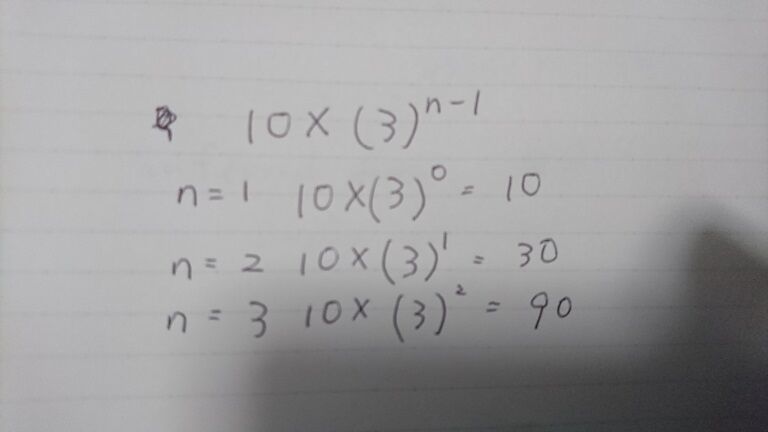 10 × (3)^{n-1}
n = 1 10×(3)^0 = 10
n = 2 10×(3)^1 = 30
n = 3 10×(3)^2 = 90